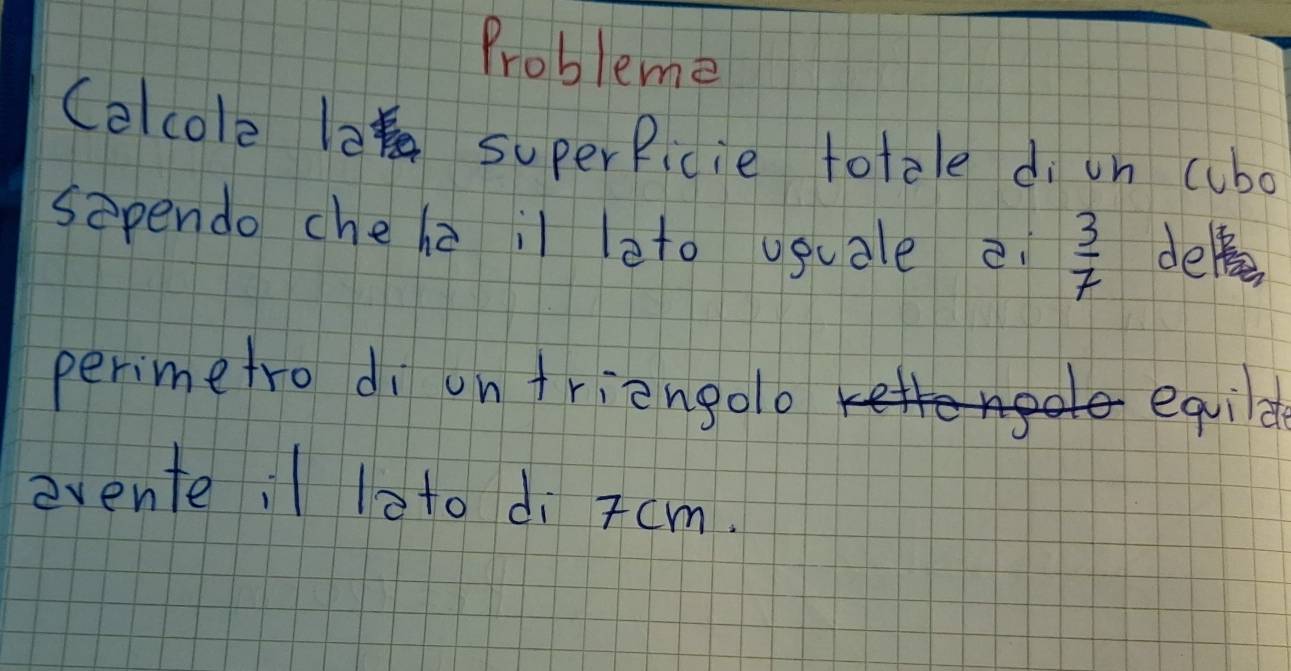 Problema
Calcola la superficie totale di un cubo
sapendo che ha il lato uguale ai 3/7 del
perimetro di un triangolo rettangolo equilate
avente il lato di 7cm.